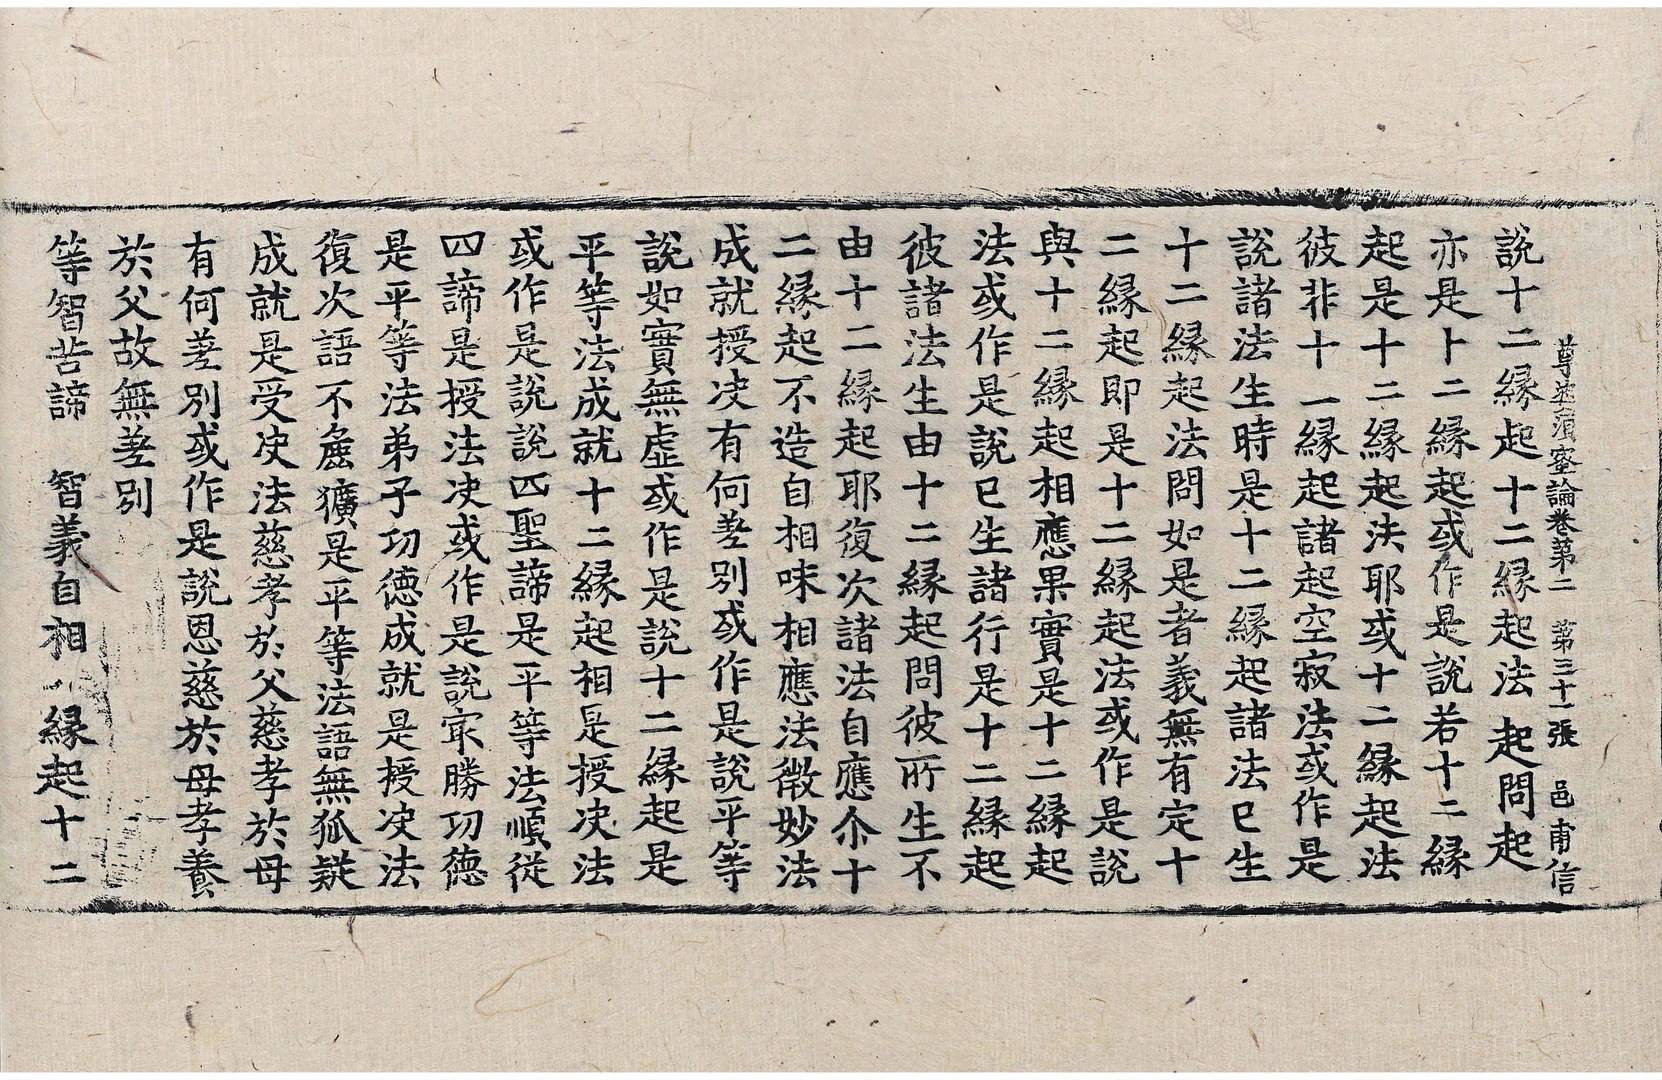 尊婆湏蜜論卷第二　第三十一張　邑甫信
說十二縁起十二縁起法　起問起
亦是十二縁起或作是說若十二縁
起是十二縁起法耶或十二縁起法
彼非十一縁起諸起空寂法或作是
說諸法生時是十二縁起諸法已生
十二縁起法問如是者義無有定十
二縁起即是十二縁起法或作是說
與十二縁起相應果實是十二縁起
法或作是說已生諸行是十二縁起
彼諸法生由十二縁起問彼所生不
由十二縁起耶復次諸法自應尒十
二縁起不造自相味相應法微妙法
成就授决有何差別或作是說平等
說如實無虛或作是說十二縁起是
平等法成就十二縁起相是授决法
或作是說說四聖諦是平等法順從
四諦是授法决或作是說冣勝功德
是平等法弟子功德成就是授决法
復次語不麁獷是平等法語無狐疑
成就是受决法慈孝於父慈孝於母
有何差別或作是說恩慈於母孝養
於父故無差別
等智苦諦　智義自相　縁起十二